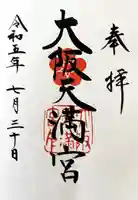 奉拝
大阪天満宮
令和五年七月三十日